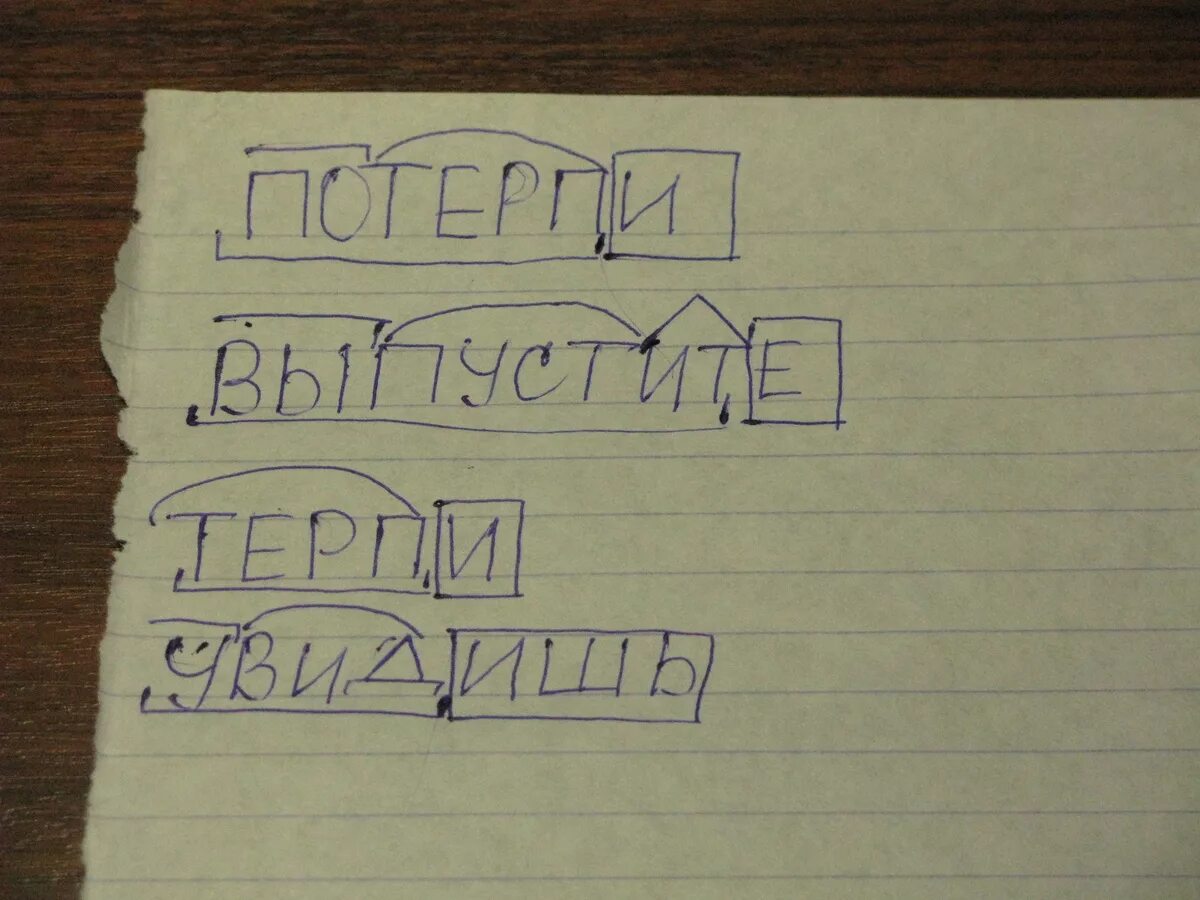 ПОТЕРПИ
ВЫПУСТИТЕ
ТЕРПИ
УВИДИШЬ